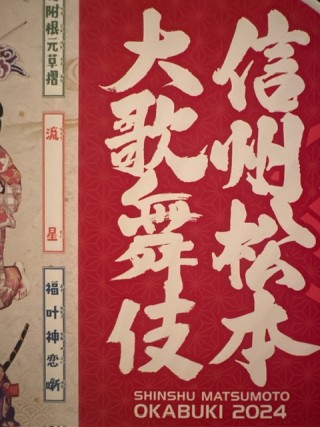 信州松本
大歌舞伎
SHINSHU MATSUMOTO
OKABUKI 2024
附根元草摺
流星
福叶神恋噺